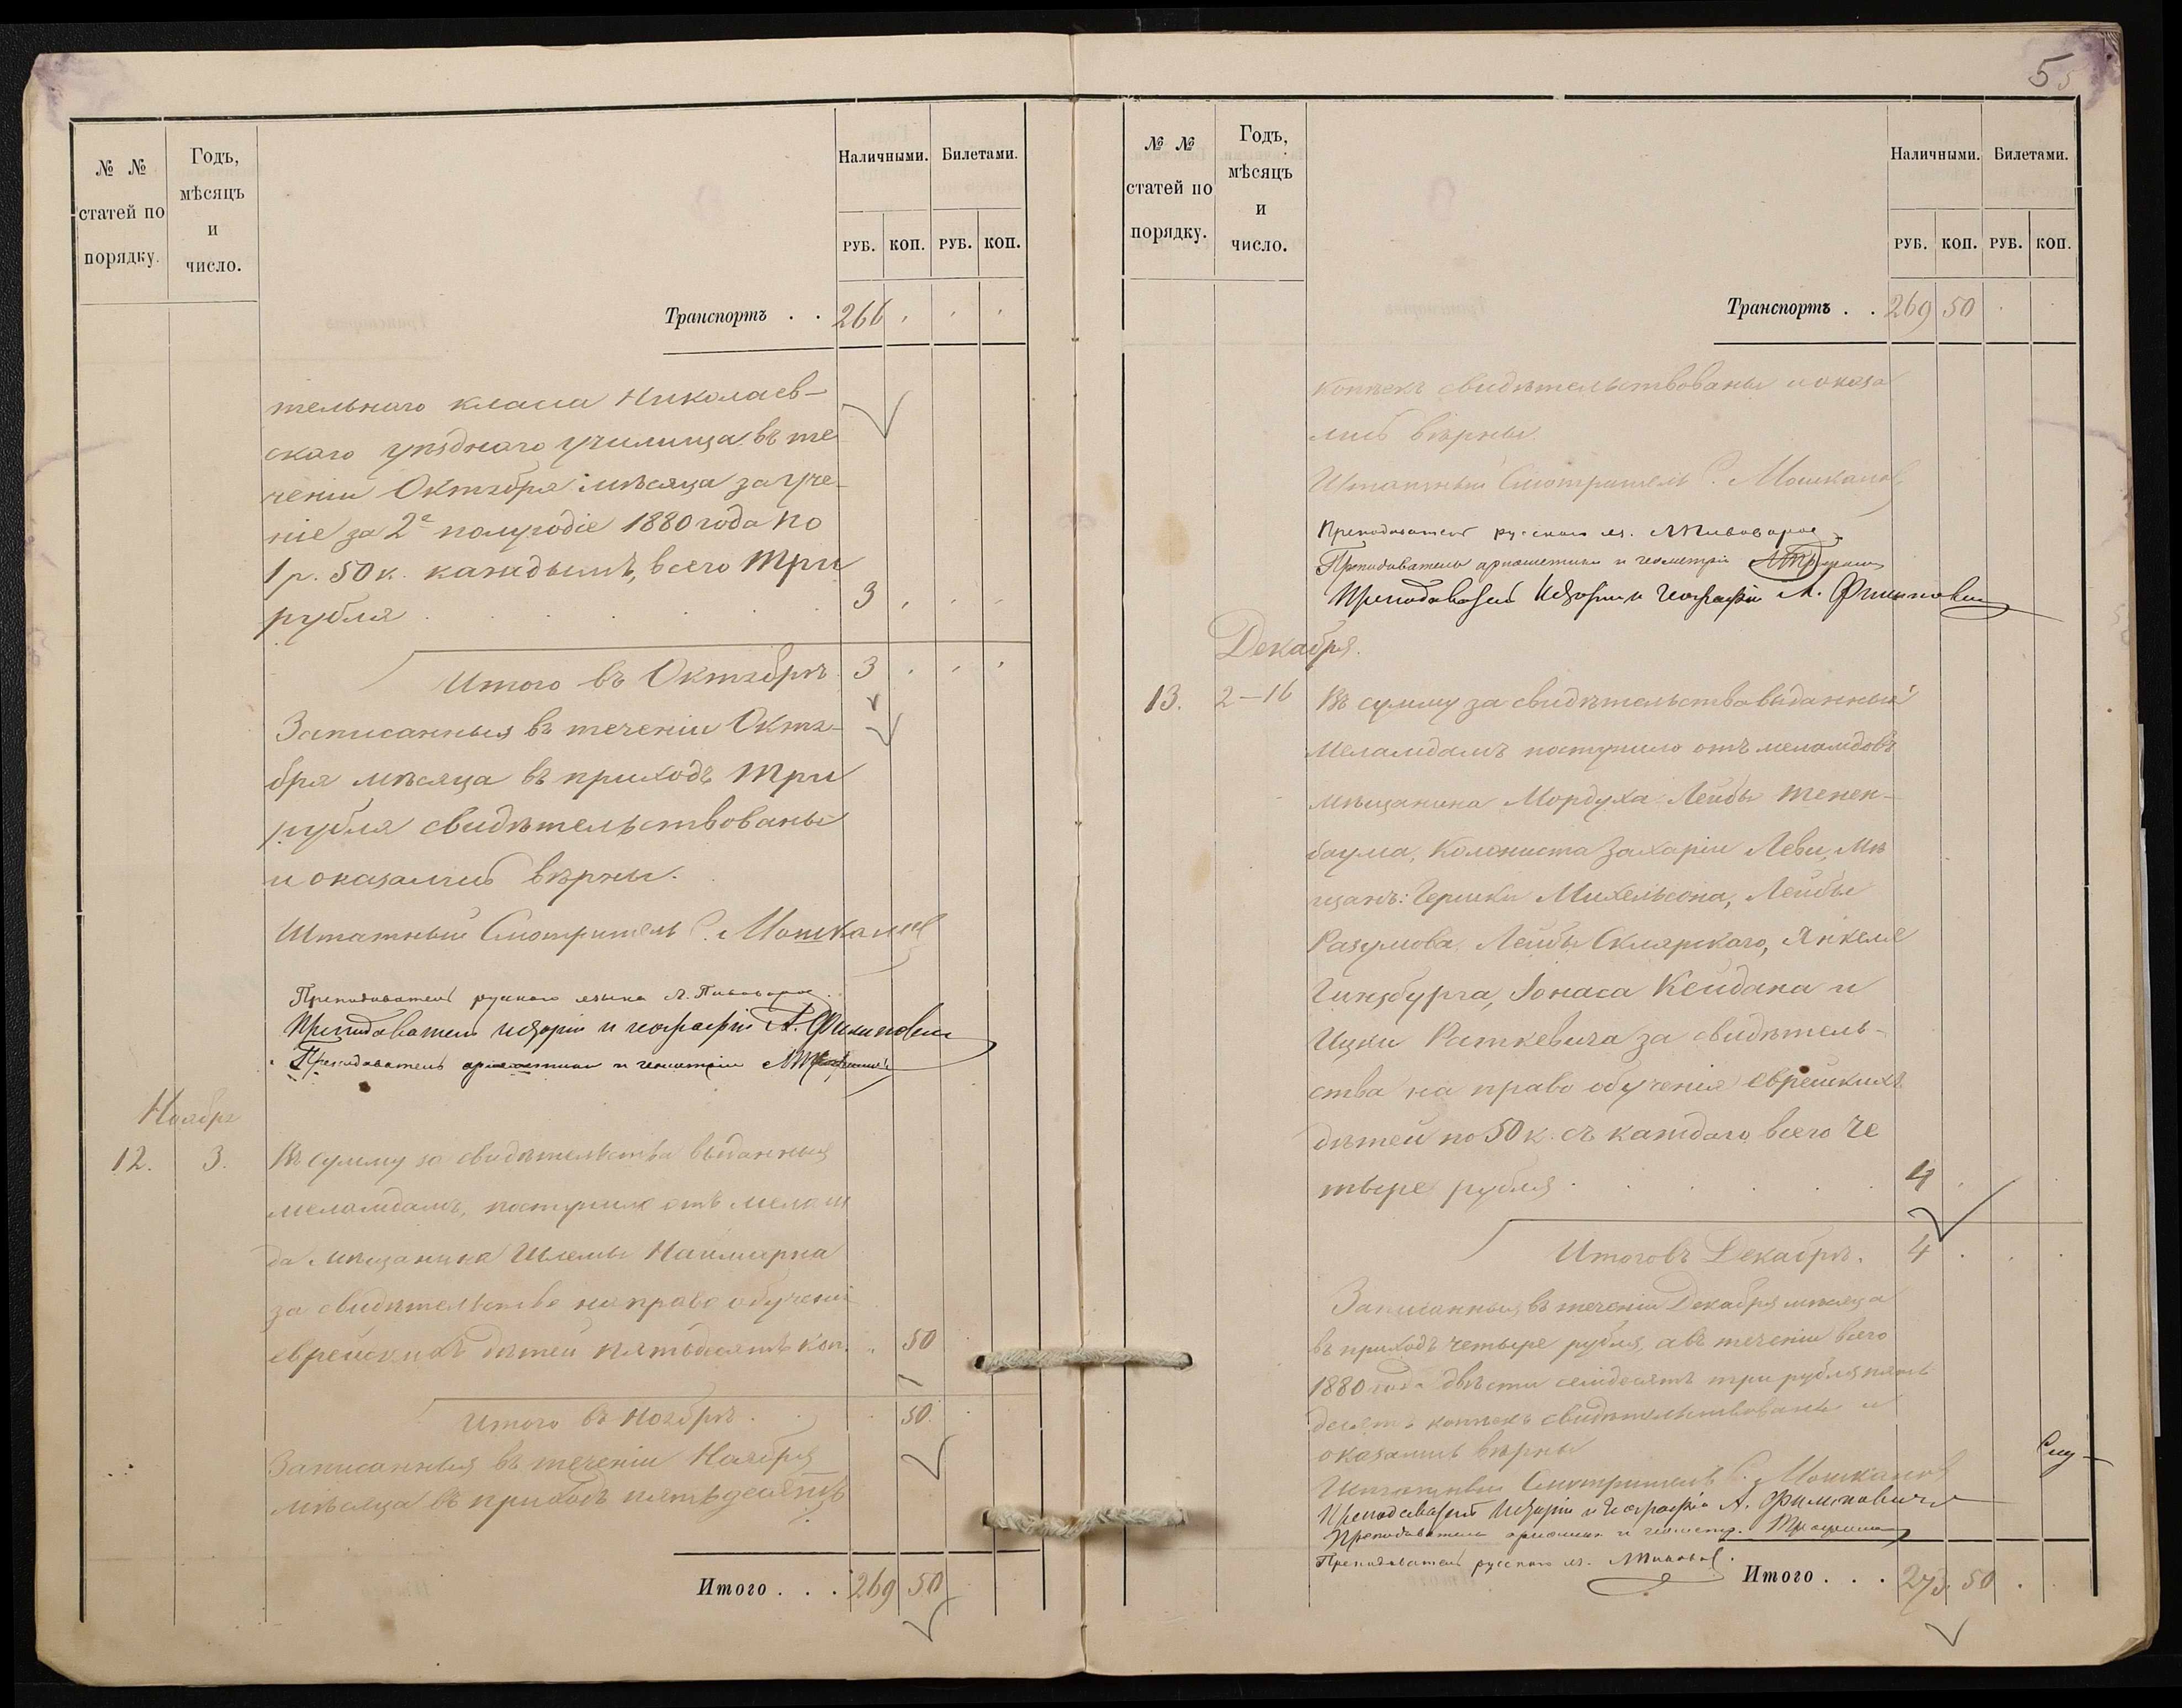 № №
статей по
порядку.
Годъ,
мѣсяцъ
и
число.
Наличными.
Билетами.
РУБ.
КОП.
РУБ.
КОП.
Транспортъ . . 266
тельнаго класса Николаев-
скаго уѣзднаго училища въ те
ченіи Октября мѣсяца за уче-
ніе за 2е полугодіе 1880 года по
1 р. 50 к. каждымъ, всего три
рубля 3
Итого въ Октябрѣ 3
Записанныя въ теченіи Октя-
бря мѣсяца въ приходъ три
рубля свидѣтельствованы
и оказались вѣрны.
Штатный Смотритель С. Мошкалов
Преподаватель русскаго языка Л. Пивоваров
Преподаватель исторіи и географіи А. Филипович
Преподаватель ариѳметики и геометріи
Ноября
12. 3. Въ сумму за свидѣтельства выданныя
меламдамъ, поступило отъ мелам
да мѣщанина Шлемы Наймарка
за свидѣтельство на право обученія
еврейскихъ дѣтей пятьдесятъ коп. „ 50
Итого въ Ноябрѣ . . 50.
Записанныя въ теченіи Ноября
мѣсяца въ приходъ пятьдесятъ
Итого . . . 269 50
5
№ №
статей по
порядку.
Годъ,
мѣсяцъ
и
число.
Наличными.
Билетами.
РУБ.
КОП.
РУБ.
КОП.
Транспортъ . . 269 50
копѣекъ свидѣтельствованы и оказа
лись вѣрны.
Штатный Смотритель С. Мошкалов
Преподаватель русскаго яз. Л Пивоваров
Преподаватель ариѳметики и геометріи
Преподаватель Исторіи и Географіи А. Филипович
Декабря.
13. 2–16 Въ сумму за свидѣтельства выданныя
меламдамъ поступило отъ меламдовъ
мѣщанина Мордуха Лейбы Тенен-
баума, колониста Захарія Леви, мѣ
щанъ: Гершки Михельсона, Лейбы
Разумова, Лейбы Склярскаго, Янкеля
Гинзбурга, Іонаса Кейдана и
Ицки Раткевича за свидѣтель-
ства на право обученія еврейскихъ
дѣтей по 50 к. съ каждаго, всего че
тыре рубля . . . . . 4
Итого въ Декабрѣ. 4
Записанныя въ теченіи Декабря мѣсяца
въ приходъ четыре рубля, а въ теченіи всего
1880 года двѣсти семдесятъ три рубля пять
десятъ копѣекъ свидѣтельствованы и
оказались вѣрны
Штатный Смотритель С. Мошкалов
Преподаватель Исторіи и Географіи А. Филипович
Преподаватель ариѳмет. и геометр.
Преподаватель русскаго яз.
Итого . . . 273. 50